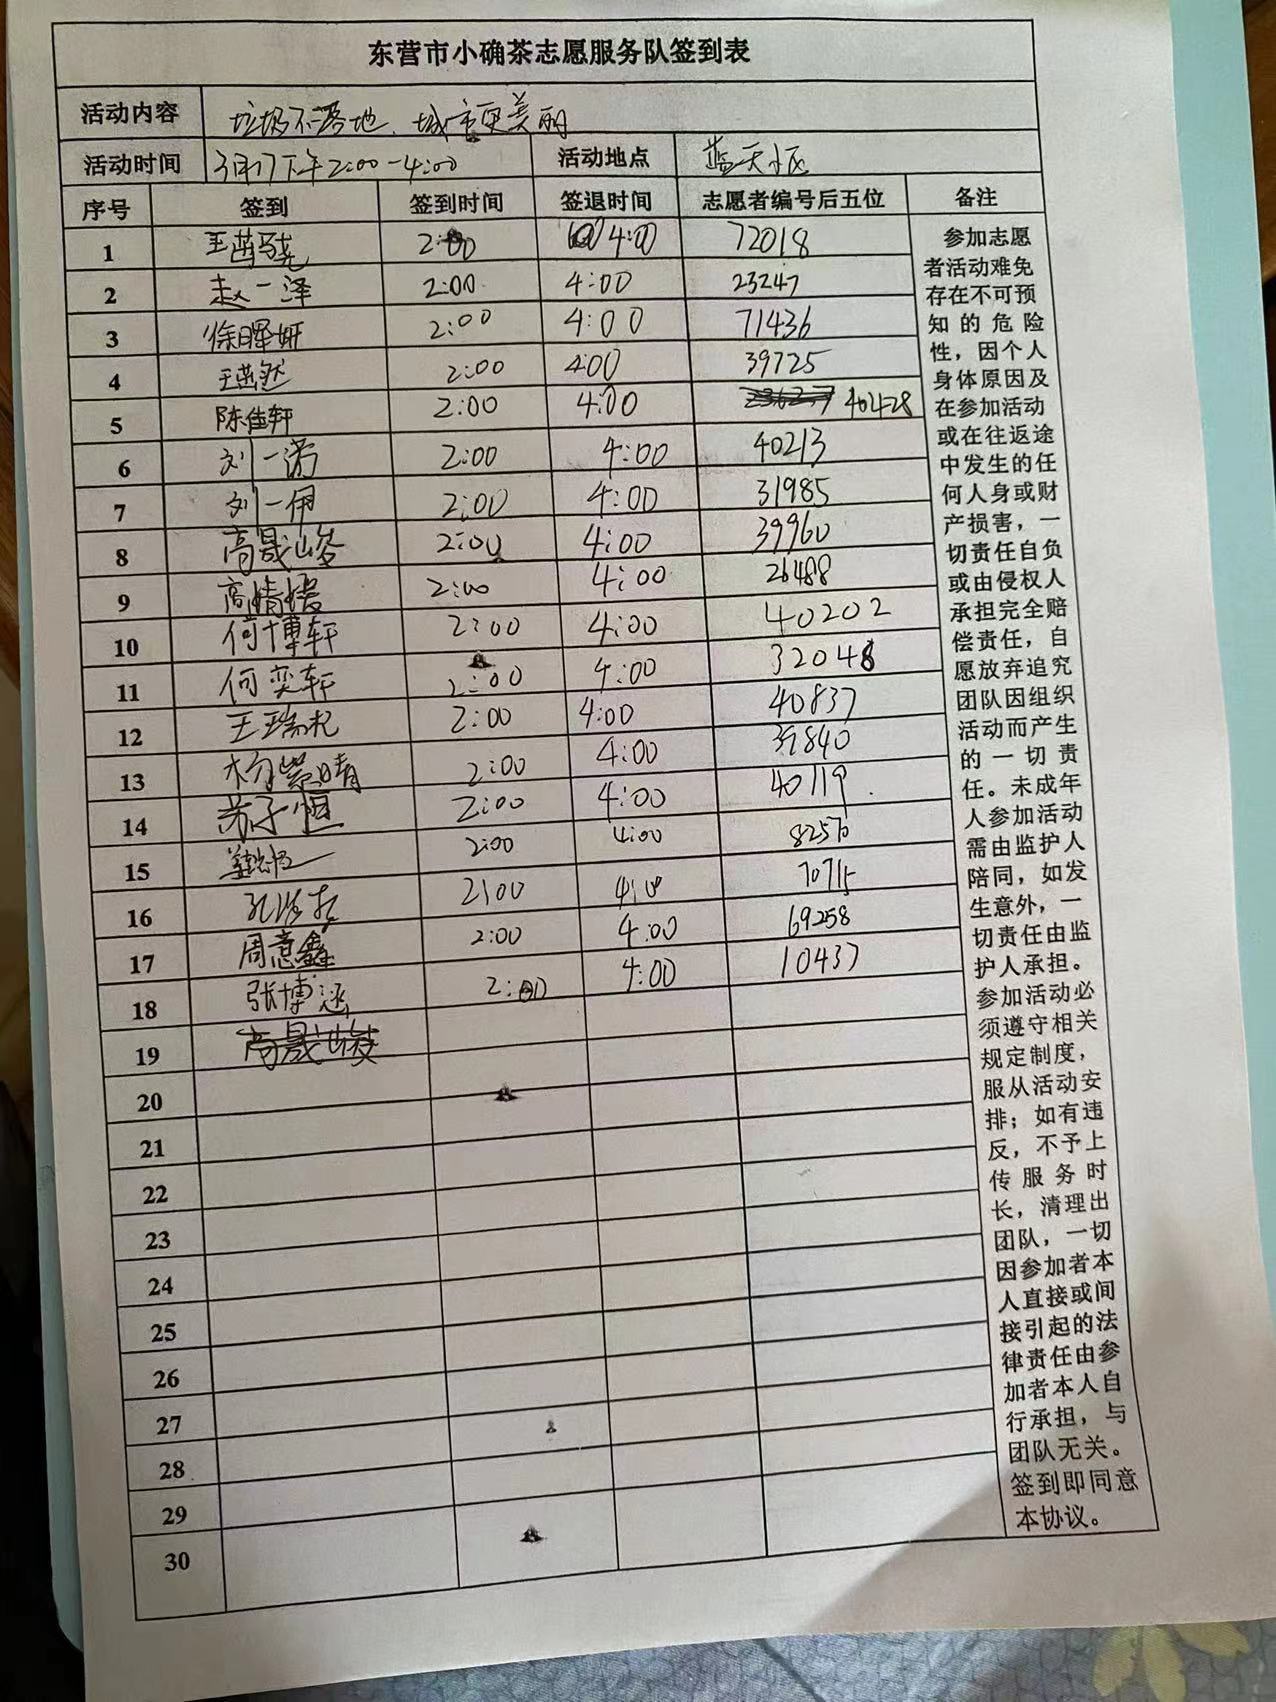 东营市小确茶志愿服务队签到表
活动内容 垃圾不落地、城市更美丽
活动时间 3月17下午2:00-4:00 活动地点 蓝天小区
序号 签到 签到时间 签退时间 志愿者编号后五位 备注
1 王茜骁 2:00 4:00 72018
2 赵一泽 2:00 4:00 23247
3 徐晖妍 2:00 4:00 71436
4 2:00 4:00 39725
5 陈佳轩 2:00 4:00 40428
6 刘一诺 2:00 4:00 40213
7 刘一伊 2:00 4:00 31985
8 高晟峻 2:00 4:00 39960
9 高婧媛 2:00 4:00 26488
10 何博轩 2:00 4:00 40202
11 何奕轩 2:00 4:00 32048
12 王瑞杞 2:00 4:00 40837
13 杨紫晴 2:00 4:00 39840
14 苏子恒 2:00 4:00 40119
15 2:00 4:00 82570
16 2:00 4:00 70715
17 周意鑫 2:00 4:00 69258
18 张博涵 2:00 4:00 10437
19 高晟峻
20
21
22
23
24
25
26
27
28
29
30
参加志愿
者活动难免
存在不可预
知的危险
性，因个人
身体原因及
在参加活动
或在往返途
中发生的任
何人身或财
产损害，一
切责任自负
或由侵权人
承担完全赔
偿责任，自
愿放弃追究
团队因组织
活动而产生
的一切责
任。未成年
人参加活动
需由监护人
陪同，如发
生意外，一
切责任由监
护人承担。
参加活动必
须遵守相关
规定制度，
服从活动安
排；如有违
反，不予上
传服务时
长，清理出
团队，一切
因参加者本
人直接或间
接引起的法
律责任由参
加者本人自
行承担，与
团队无关。
签到即同意
本协议。